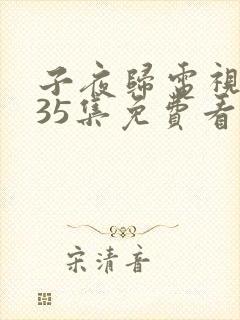 子夜歸電視
35集免費看
宋清音